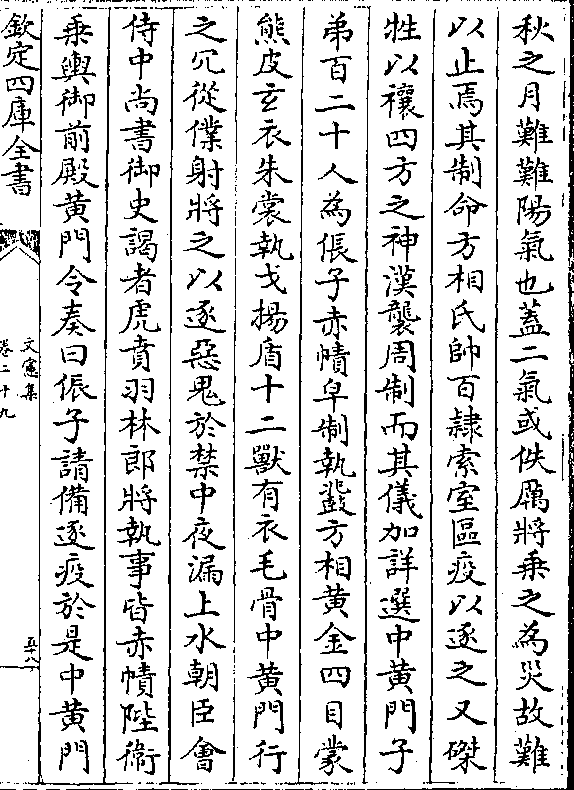 秋之月難難陽氣也蓋二氣或佚厲將乗之為災故難
以止焉其制命方相氏帥百隷索室區疫以逐之又磔
牲以禳四方之神漢襲周制而其儀加詳選中黄門子
弟百二十人為侲子赤幘皁制執鼗方相黄金四目蒙
熊皮玄衣朱裳執戈揚盾十二獸有衣毛骨中黄門行
之冗從僕射將之以逐惡鬼於禁中夜漏上水朝臣會
侍中尚書御史謁者虎賁羽林郎將執事皆赤幘陛衞
乗輿御前殿黄門令奏曰侲子請備逐疫於是中黄門
欽定四庫全書
文憲集
卷二十九
五十八